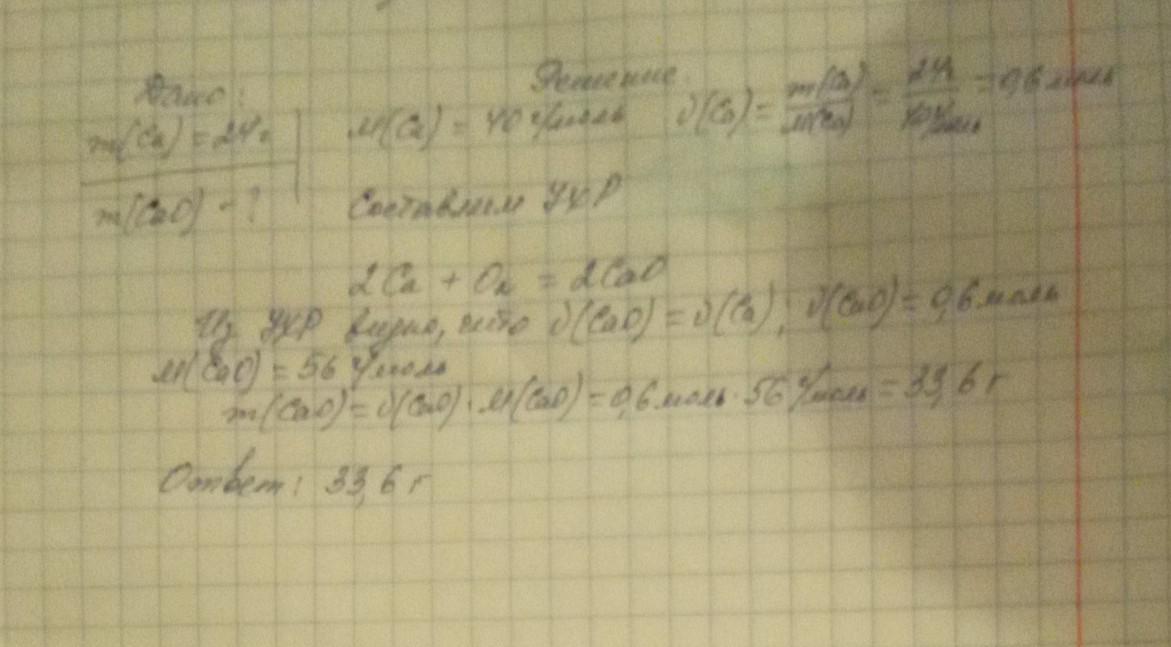 Дано:
m(Ca) = 24 г
m(CaO) - ?
Решение.
M(Ca) = 40 г/моль ν(Ca) = m(Ca)/M(Ca) = 24г/40г/моль = 0,6 моль
Составим УХР
2Ca + O₂ = 2CaO
Из УХР видно, что ν(CaO) = ν(Ca); ν(CaO) = 0,6 моль
M(CaO) = 56 г/моль
m(CaO) = ν(CaO) · M(CaO) = 0,6 моль · 56 г/моль = 33,6 г
Ответ: 33,6 г